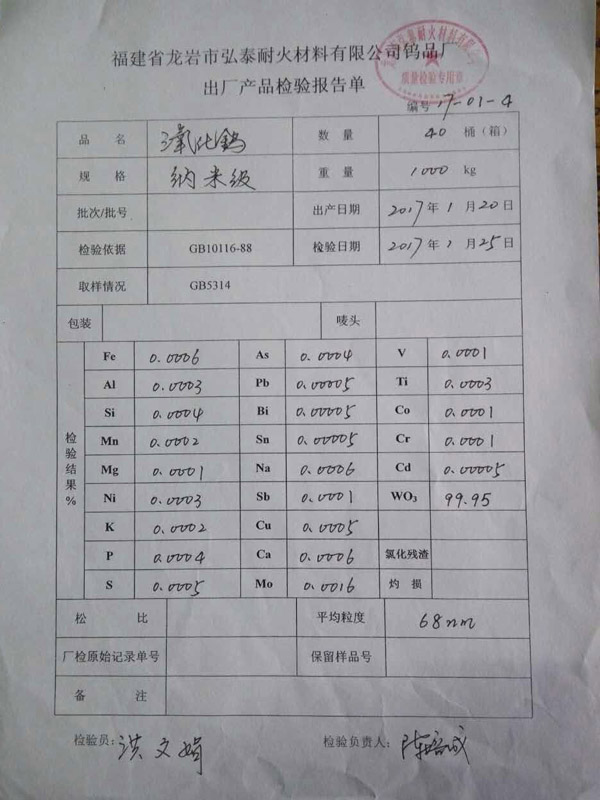 福建省龙岩市弘泰耐火材料有限公司钨品厂
出厂产品检验报告单
质量检验专用章
编号 17-01-4
品 名 氧化钨 数 量 40 桶（箱）
规 格 纳米级 重 量 1000 kg
批次/批号 出产日期 2017年1月20日
检验依据 GB10116-88 检验日期 2017年1月25日
取样情况 GB5314
包装 唛头
检验结果%
Fe 0.0006 As 0.0004 V 0.0001
Al 0.0003 Pb 0.00005 Ti 0.0003
Si 0.0004 Bi 0.00005 Co 0.0001
Mn 0.0002 Sn 0.00005 Cr 0.0001
Mg 0.0001 Na 0.0006 Cd 0.00005
Ni 0.0003 Sb 0.0001 WO₃ 99.95
K 0.0002 Cu 0.0005
P 0.0004 Ca 0.0006 氯化残渣
S 0.0005 Mo 0.0016 灼 损
松 比 平均粒度 68nm
厂检原始记录单号 保留样品号
备 注
检验员: 洪文娟 检验负责人: 陈